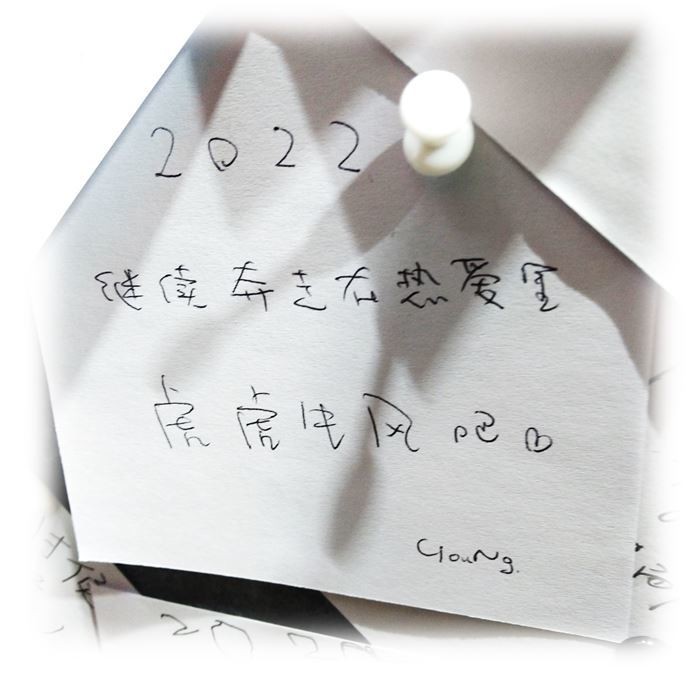 2022
继续奔走在热爱里
虎虎生风吧
Young.
2020